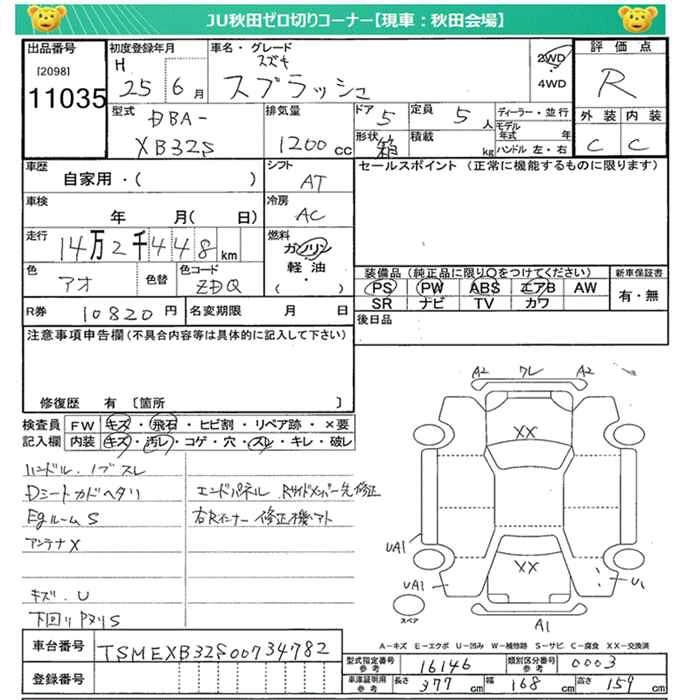 JU秋田ゼロ切りコーナー【現車：秋田会場】
出品番号
[2098]
11035
初度登録年月
H 25 6月
車名・グレード
スズキ
スプラッシュ
2WD
4WD
評価点
R
外装 内装
C C
型式
DBA-
XB32S
排気量
1200 cc
ドア 5
定員 5人
形状 箱
積載 kg
ディーラー・並行
モデル年式 年
ハンドル 左・右
車歴
自家用・( )
シフト
AT
セールスポイント（正常に機能するものに限ります）
車検
年 月( 日)
冷房
AC
走行
14万2千448km
燃料
ガソリン
軽油
( )
色
アオ
色替
色コード
ZDQ
装備品（純正品に限り○をつけてください）
PS PW ABS エアB AW
SR ナビ TV カワ
新車保証書
有・無
R券 10820円
名変期限 月 日
後日品
注意事項申告欄（不具合内容等は具体的に記入して下さい）
修復歴 有〔箇所 〕
検査員記入欄
FW キズ・飛石・ヒビ割・リペア跡・×要
内装 キズ・汚レ・コゲ・穴・スレ・キレ・破レ
ハンドル.ノブスレ
Dシートカドヘタリ
EgルームS
アンテナX
キズ.U
下回りサビS
エンドパネル Rサイドメンバー先修正
右Rインナー 修正機アト
A2 ワレ A2
XX
UA1
XX
UA1
U1
A1
スペア
A-キズ E-エクボ U-凹み W-補修跡 S-サビ C-腐食 XX-交換済
車台番号 TSMEXB32S00734782
登録番号
型式指定番号 参考 16146
類別区分番号 参考 0003
車庫証明用 参考 長さ 377cm 幅 168cm 高さ 159cm